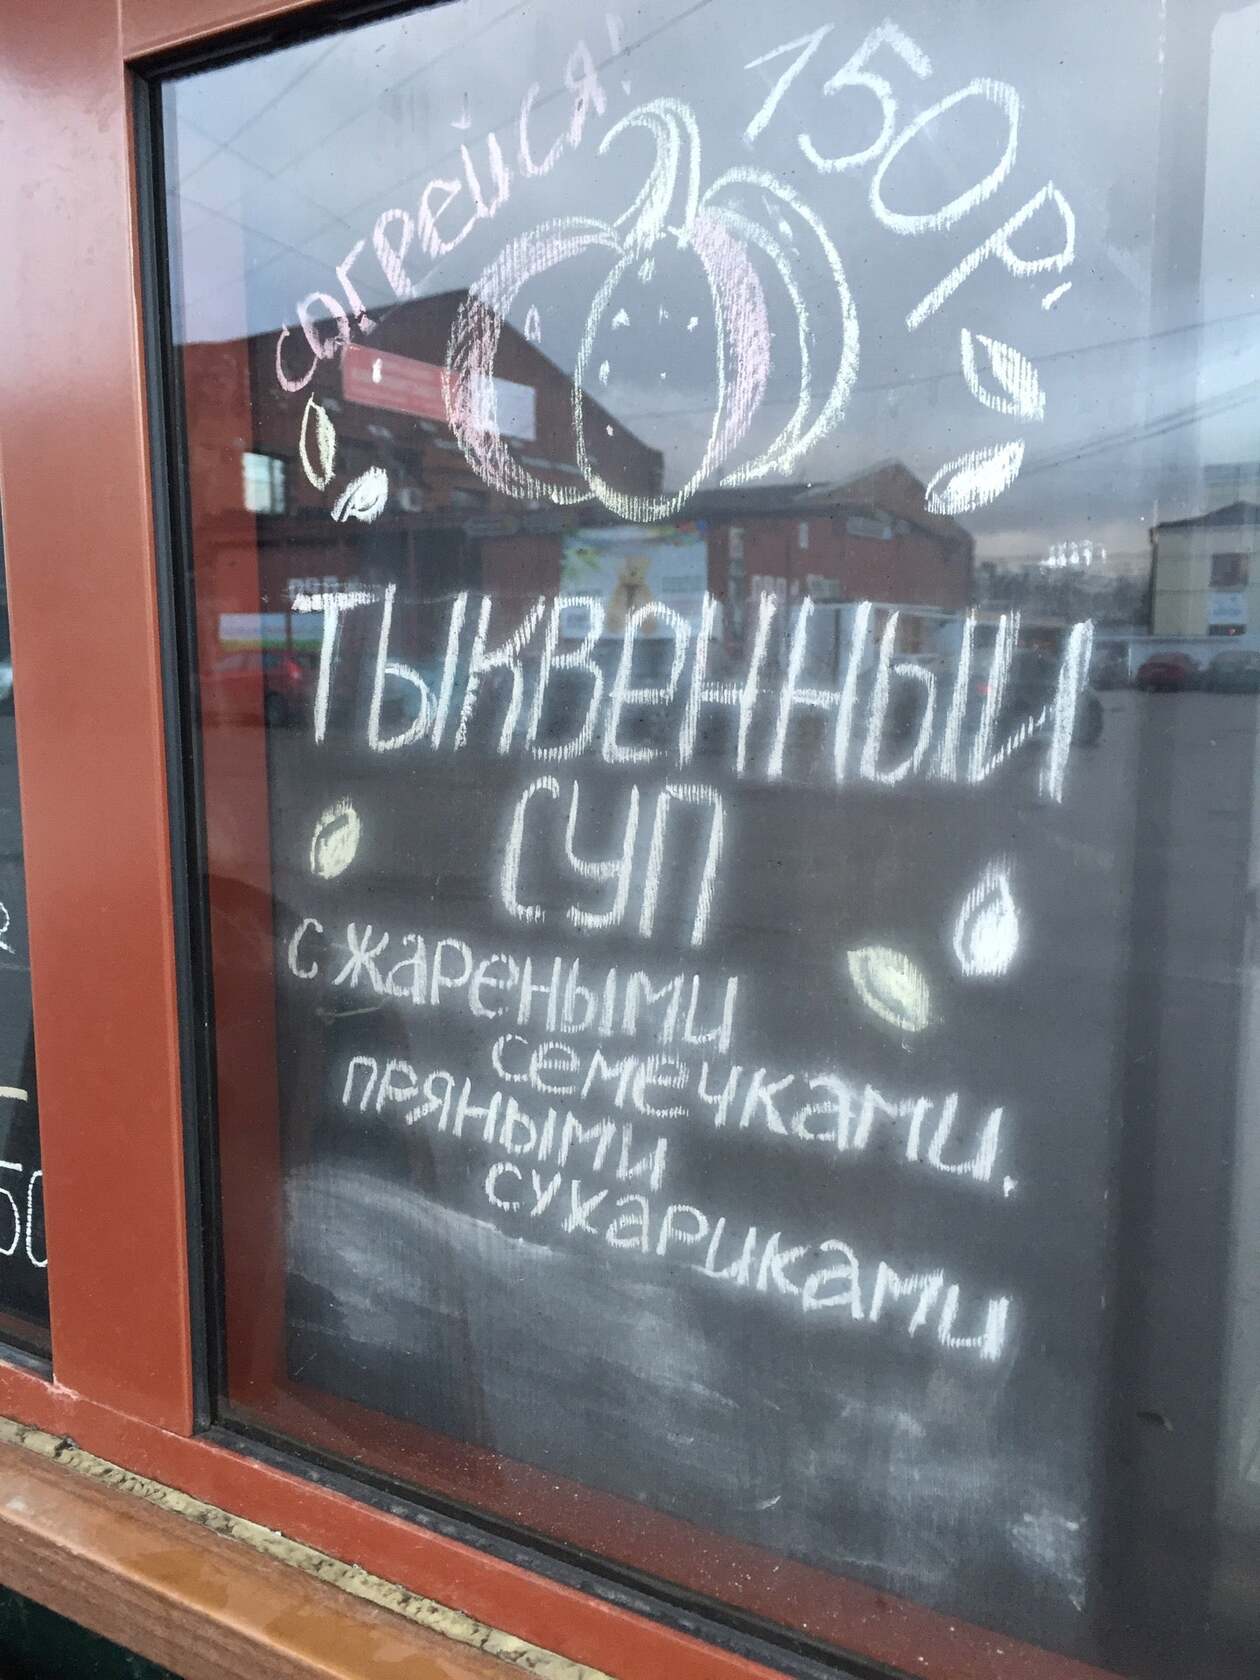 согрейся!
150р.
ТЫКВЕННЫЙ
СУП
с жареными
семечками.
пряными
сухариками
50